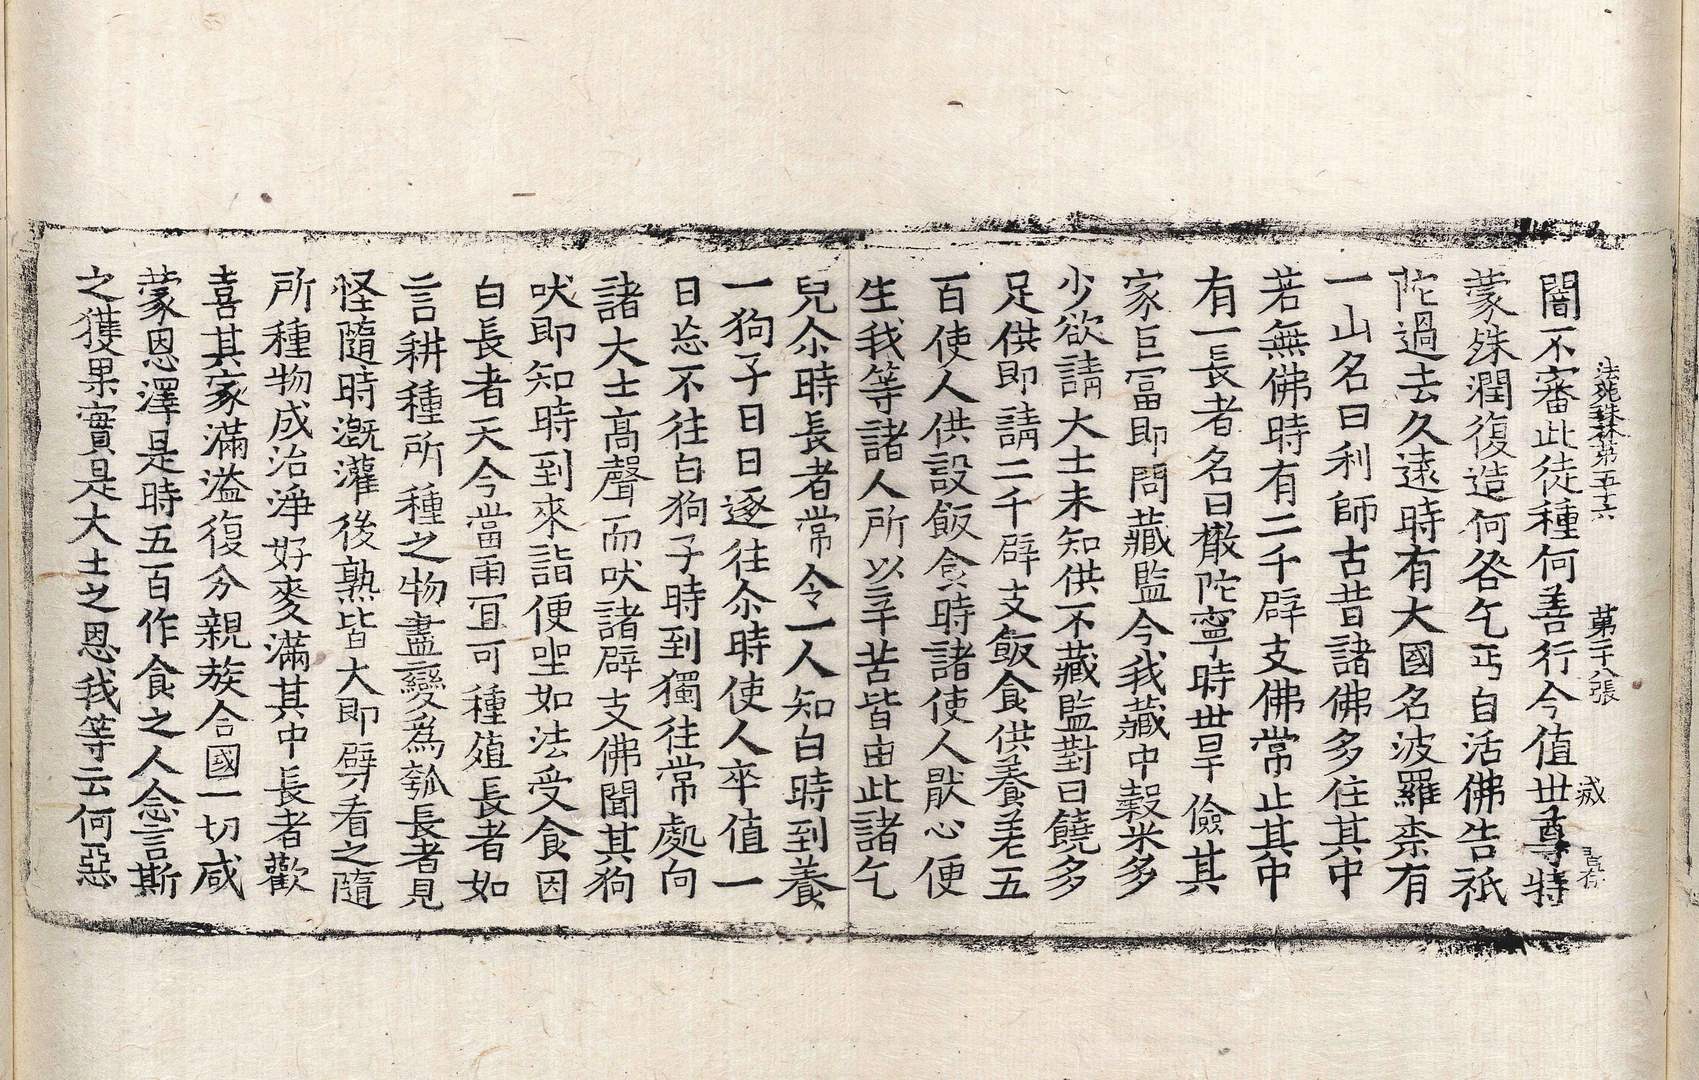 法苑珠林第五十六 第二十八張 咸
闇不審此徒種何善行今值世尊特
蒙殊潤復造何咎乞丐自活佛告祇
陀過去久遠時有大國名波羅柰有
一山名曰利師古昔諸佛多住其中
若無佛時有二千辟支佛常止其中
有一長者名曰橵陀寧時世旱儉其
家巨冨即問藏監今我藏中穀米多
少欲請大士未知供不藏監對曰饒多
足供即請二千辟支飯食供養差五
百使人供設飯食時諸使人猒心便
生我等諸人所以辛苦皆由此諸乞
兒尒時長者常令一人知白時到養
一狗子日日逐往尒時使人卒值一
日忘不往白狗子時到獨往常處向
諸大士高聲而吠諸辟支佛聞其狗
吠即知時到來詣便坐如法受食因
白長者天今當雨宜可種殖長者如
言耕種所種之物盡變為瓠長者見
怪隨時溉灌後熟皆大即劈看之隨
所種物成治淨好麥滿其中長者歡
喜其家滿溢復分親族合國一切咸
蒙恩澤是時五百作食之人念言斯
之獲果實是大士之恩我等云何惡